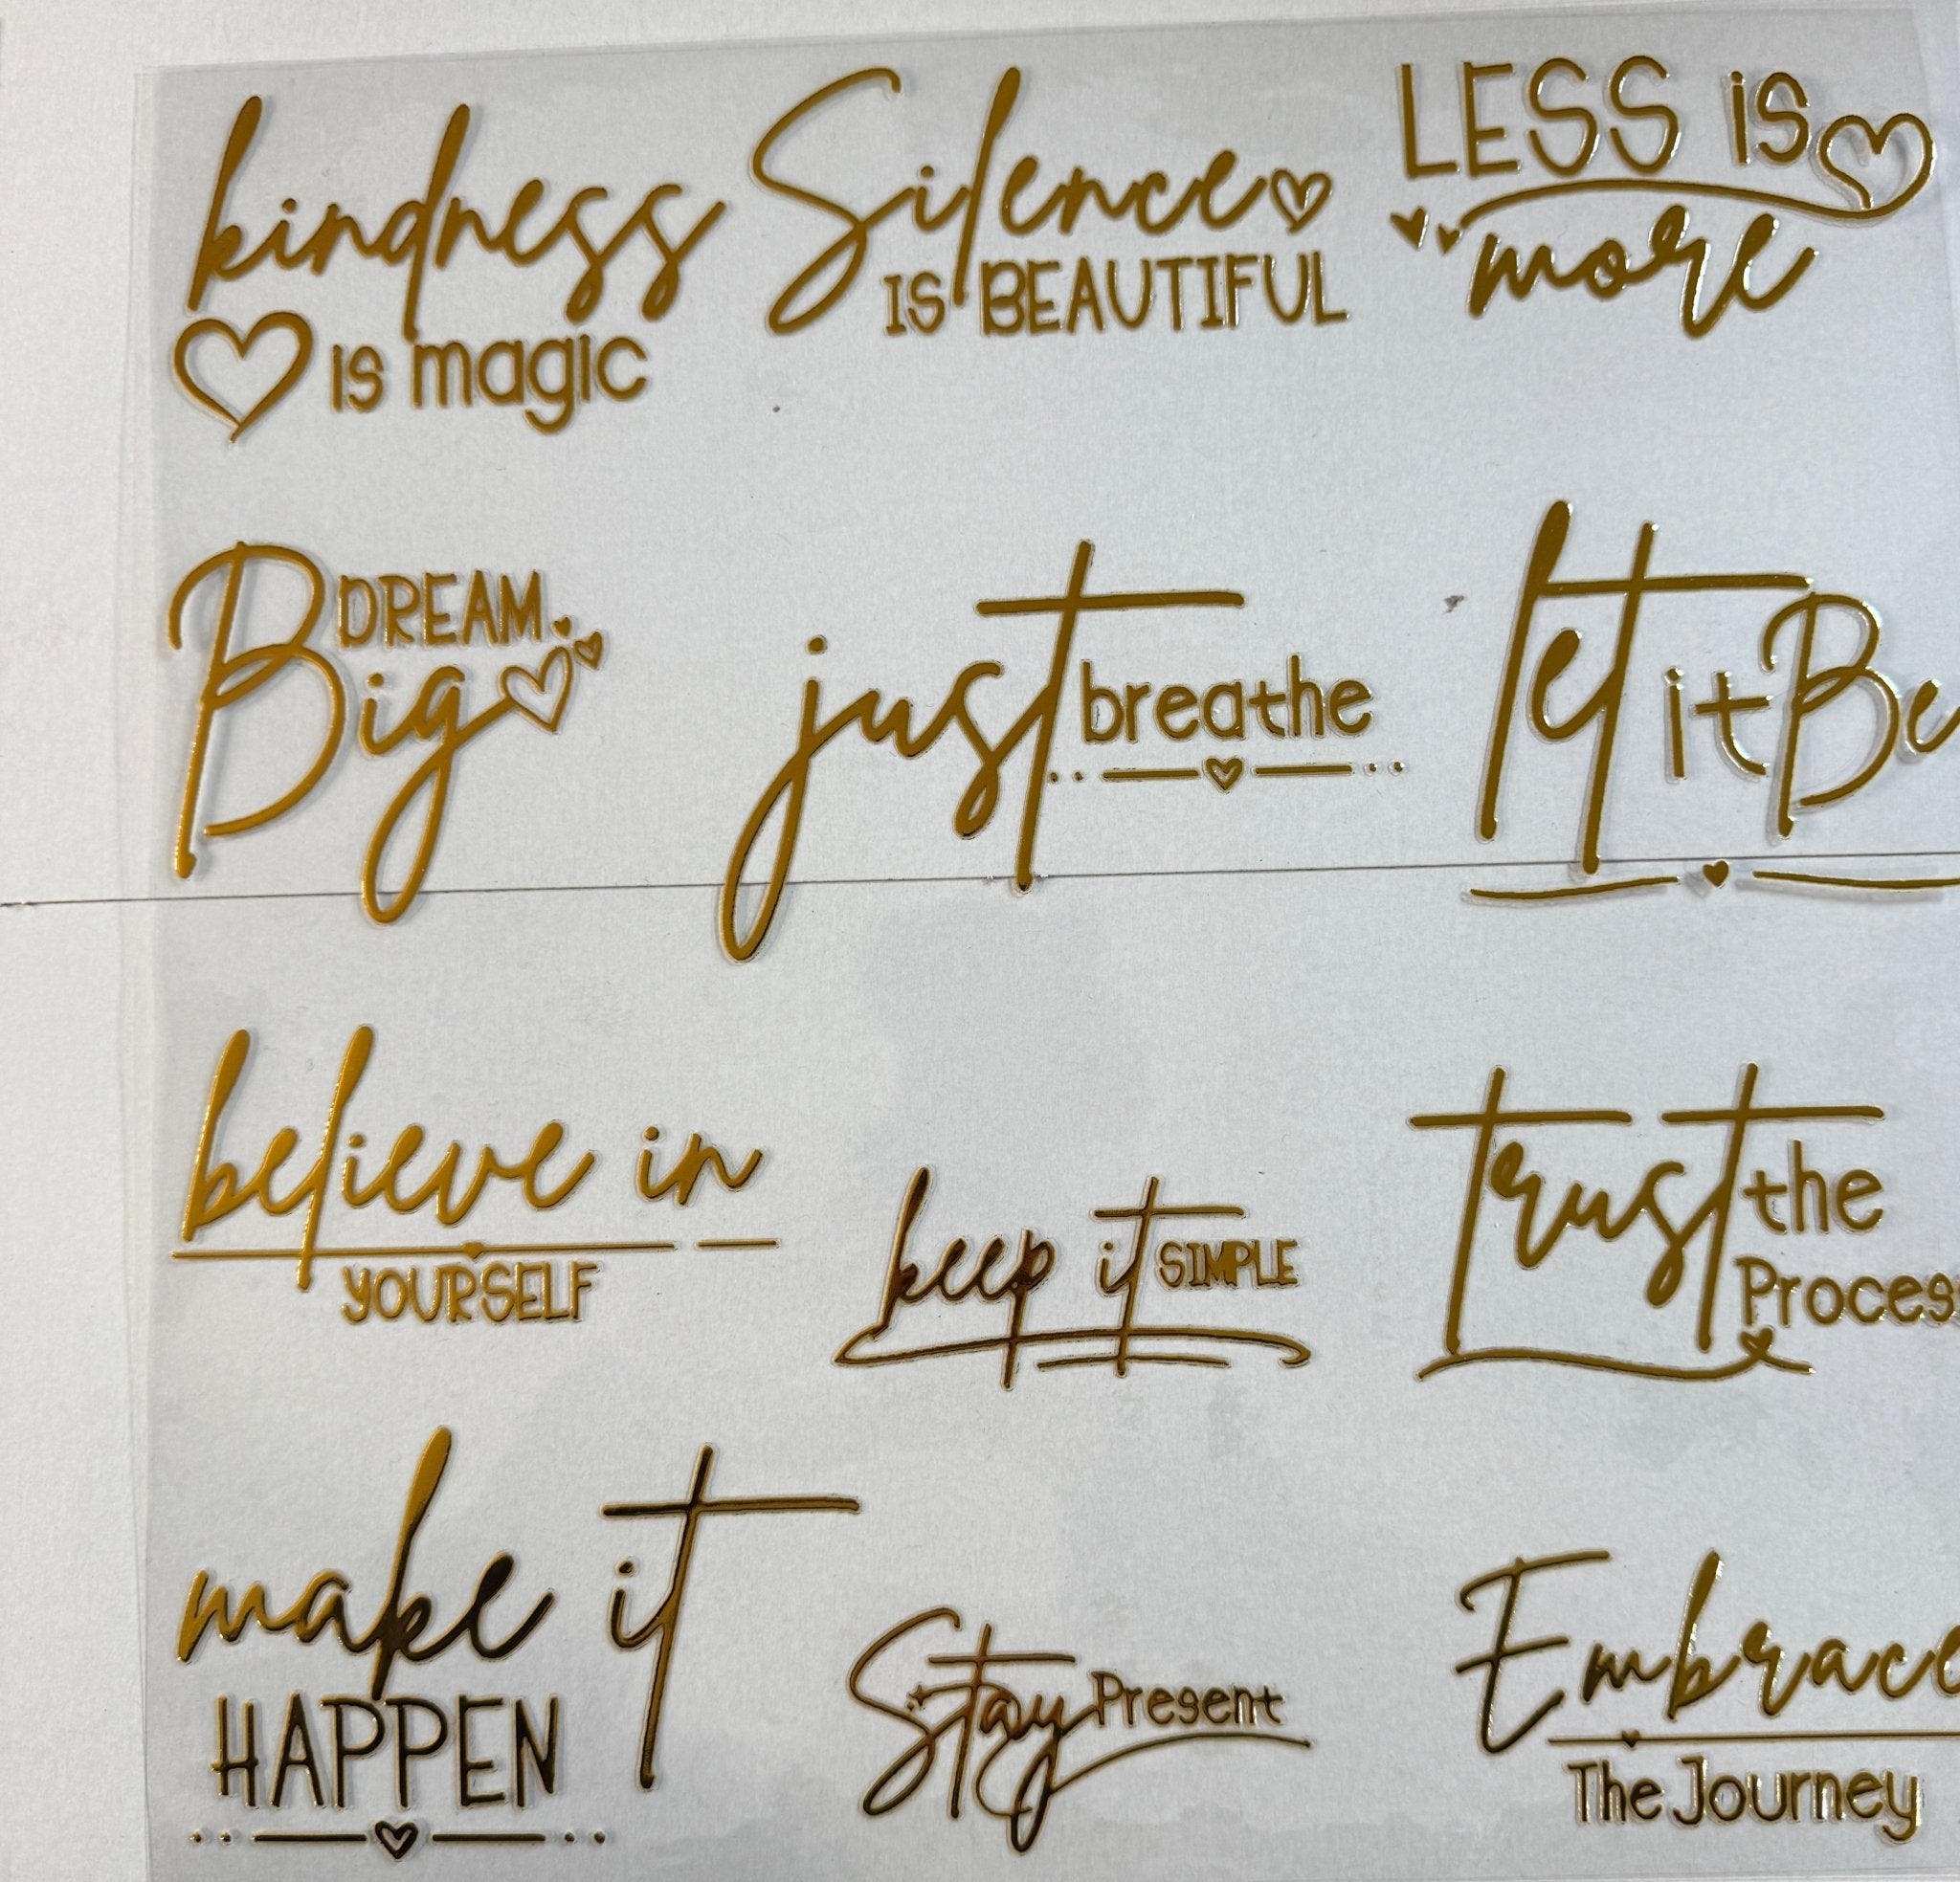 kindness
is magic
Silence
IS BEAUTIFUL
LESS is
more
DREAM
Big
just breathe
let it Be
believe in
YOURSELF
keep it SIMPLE
trust the
Proces
make it
HAPPEN
Stay Present
Embrace
The Journey